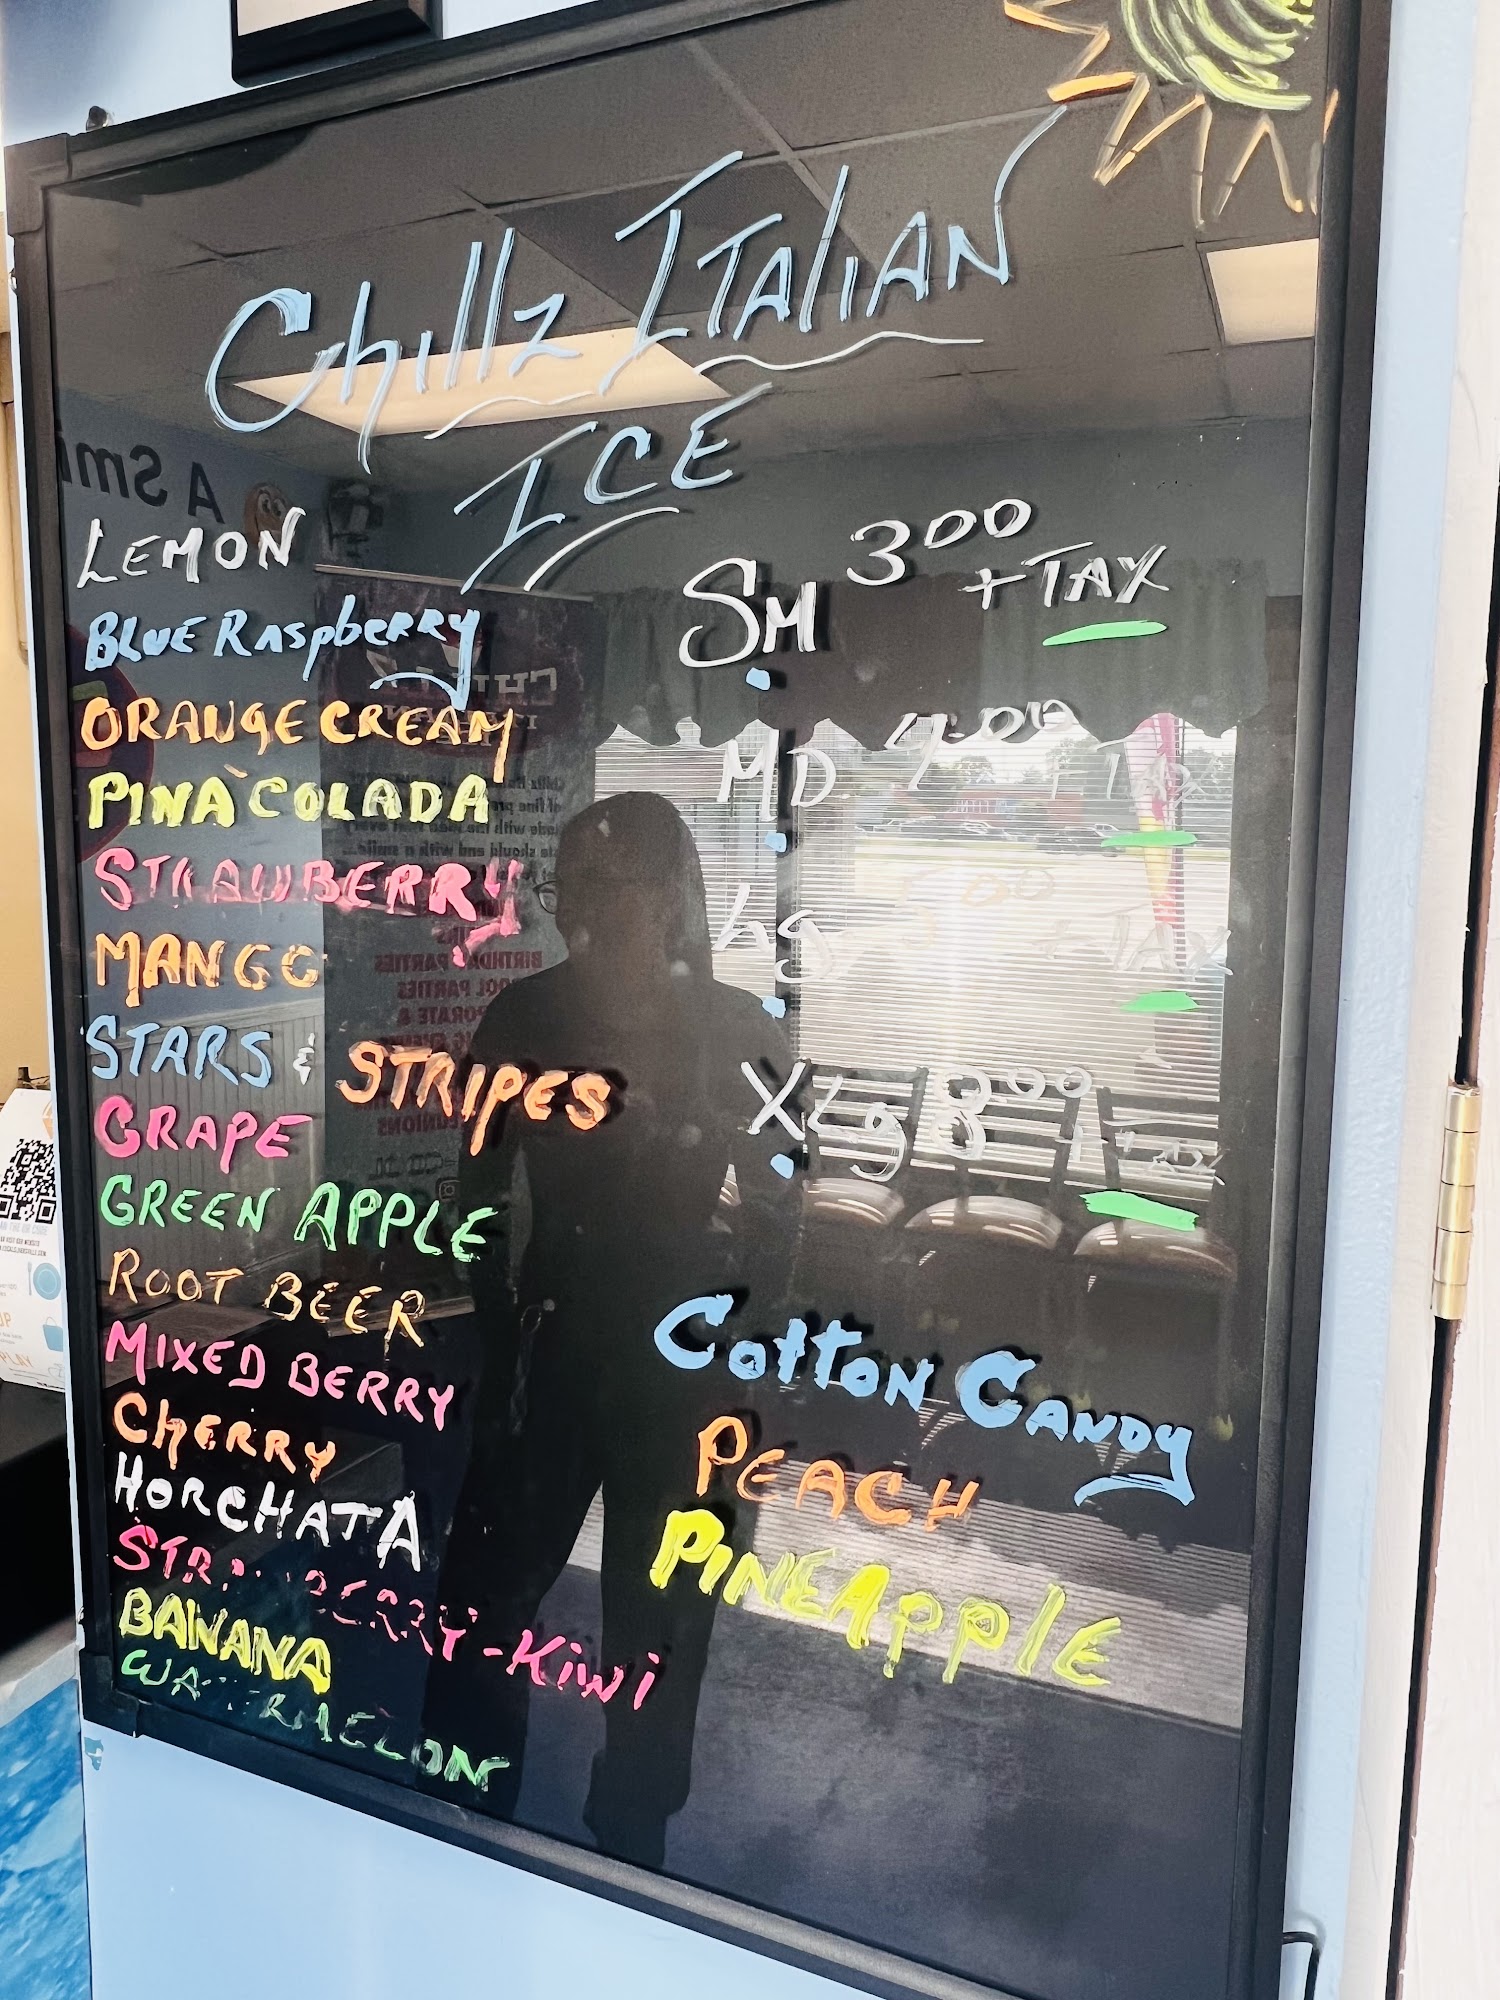 Chillz ITALIAN
ICE
LEMON
BLUE RaspbeRRy
ORANGE CREAM
PINA COLADA
STRAWBERRY
MANGO
STARS & STRIPES
GRAPE
GREEN APPLE
ROOT BEER
MIXED BERRY
ChERRY
HORCHATA
STRAWBERRY-KiWi
BANANA
WATERMELON
SM 3.00
+ TAX
MD 4.00
+ TAX
Lg 5.00
+ TAX
XLg 8.00
+ TAX
CottoN CANDY
PEACH
PINEAppLE
A Smi
BIRTHDAY PARTIES